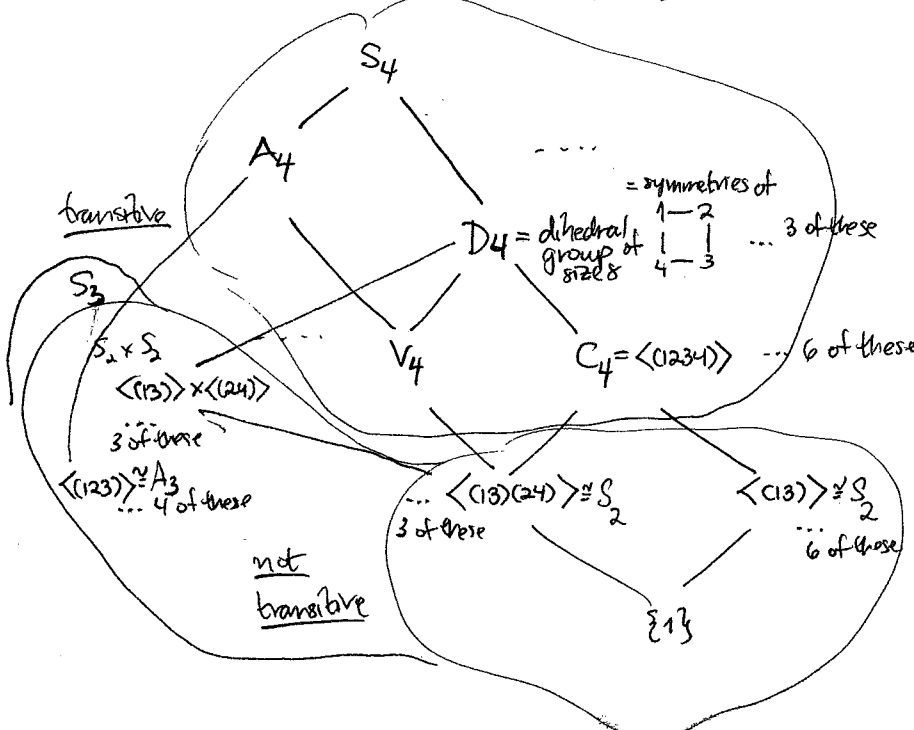 S₄
A₄
....
= symmetries of
transitive
D₄ = dihedral group of size 8
1—2
4—3
... 3 of these
S₃
S₂ × S₂
<(13)> × <(24)>
... 3 of these
....
V₄
C₄ = <(1234)>
... 6 of these
<(123)> ≅ A₃
... 4 of these
... <(13)(24)> ≅ S₂
3 of these
<(13)> ≅ S₂
... 6 of these
not
transitive
{1}